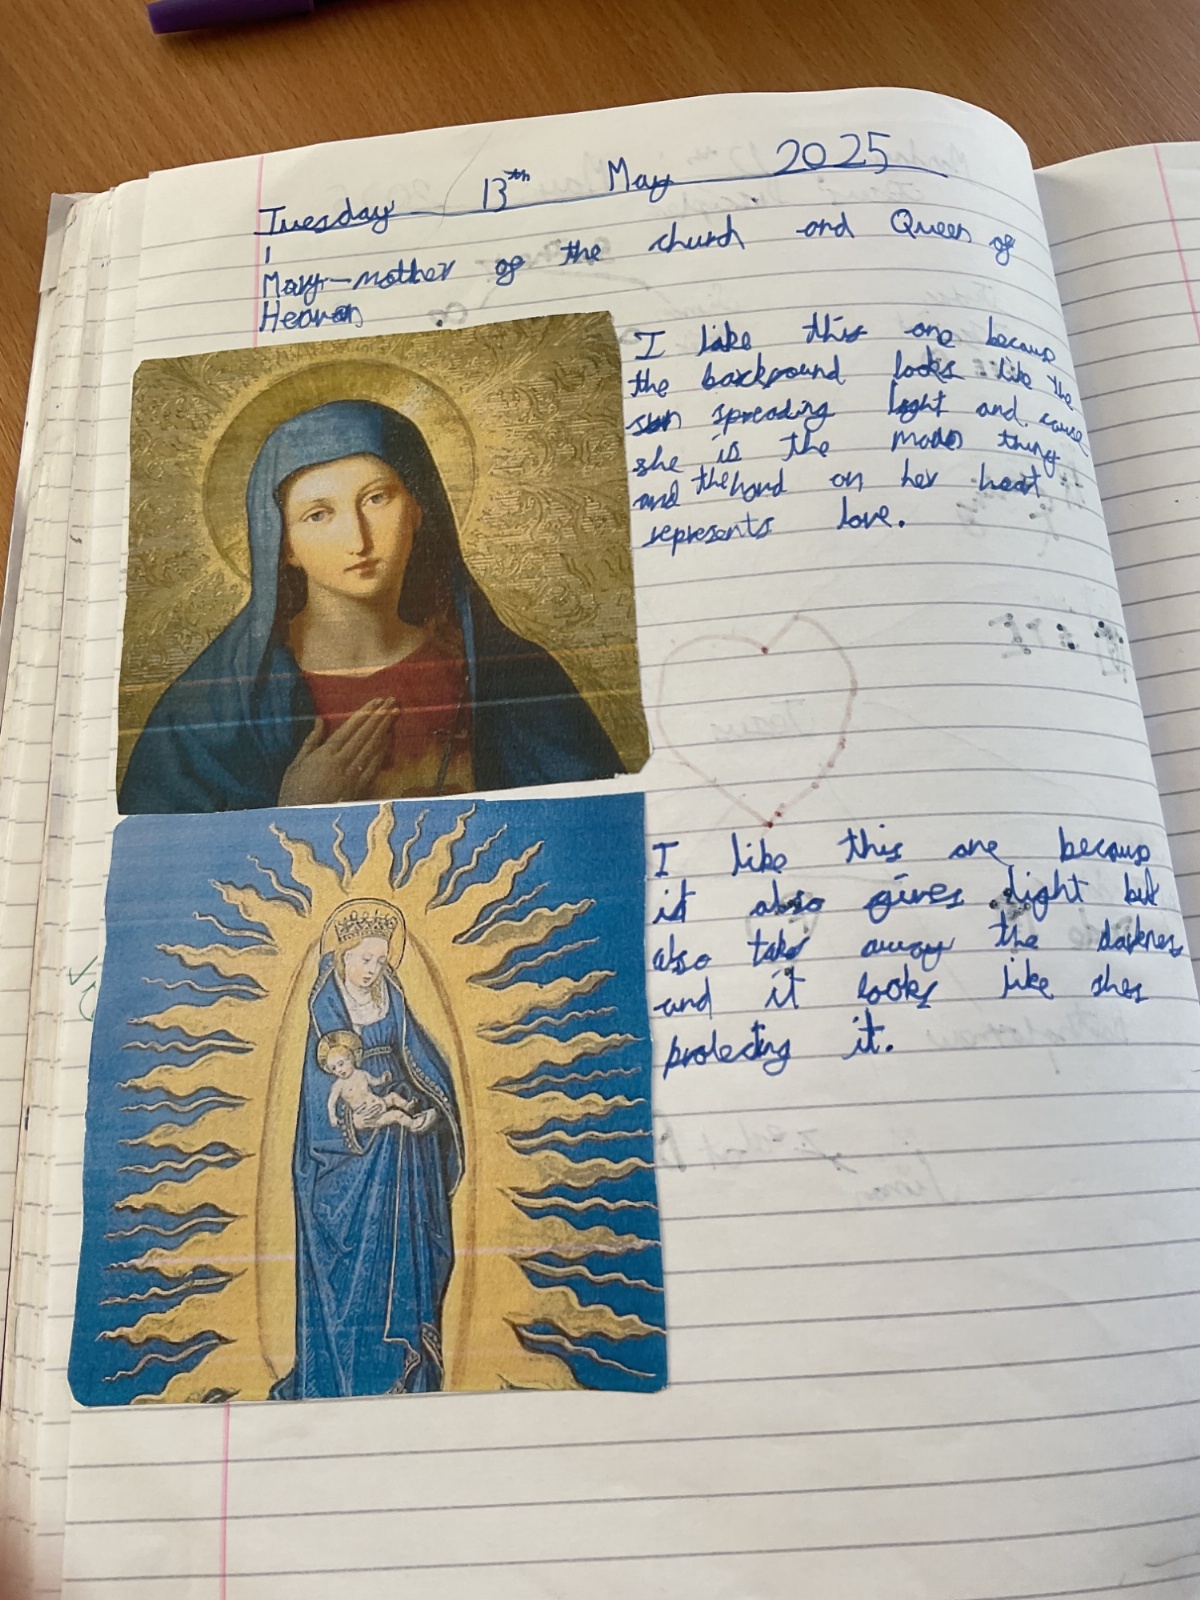 Tuesday 13th May 2025
Mary-mother of the church and Queen of
Heaven
I like this one because
the background looks like the
sun spreading light and cause
she is the main thing
and the hand on her heart
represents love.
I like this one because
it also gives light but
also take away the darkness
and it looks like shes
protecting it.